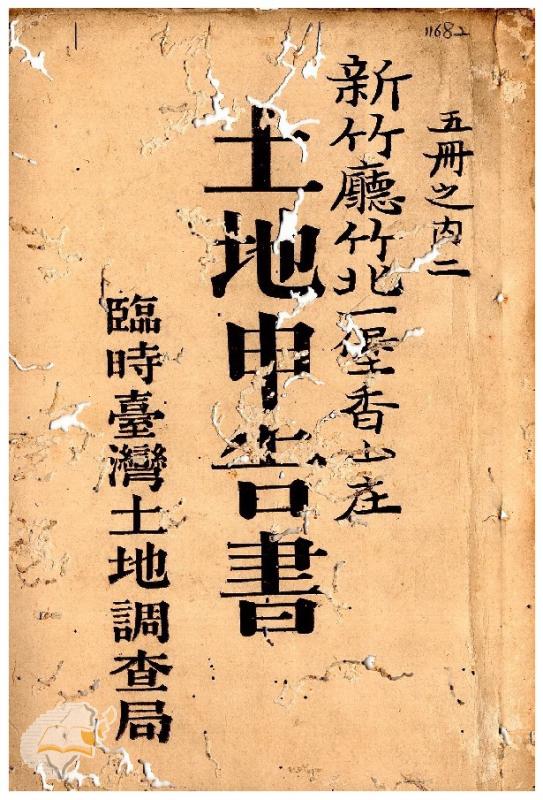 11682
五冊之內二
新竹廳竹北一堡香山庄
土地申告書
臨時臺灣土地調查局